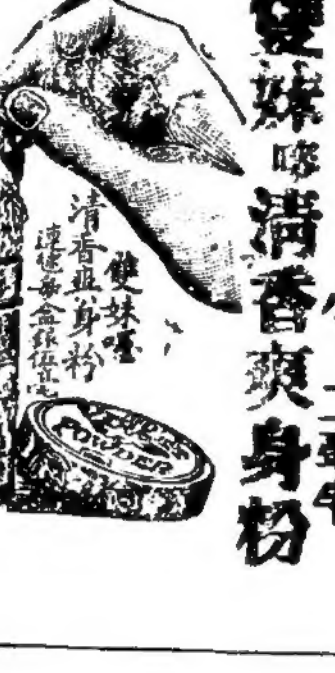 雙妹嚜清香爽身粉
雙妹嚜
清香爽身粉
連德每盒銀伍毫
POWDER